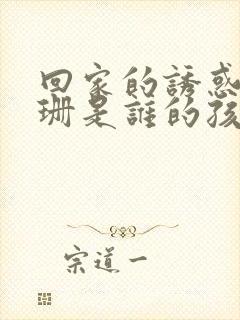 回家的誘惑
珊是誰的孩
宗道一